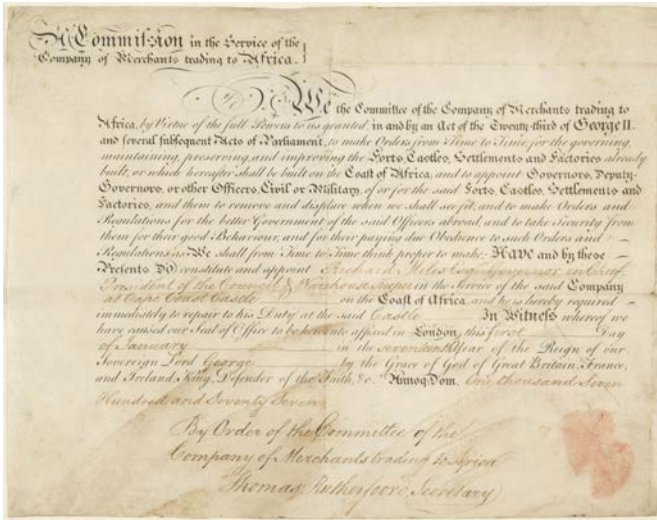 A Commission in the Service of the
Company of Merchants trading to Africa.
We the Committee of the Company of Merchants trading to
Africa, by Virtue of the full Powers to us granted, in and by an Act of the Twenty-third of George II.
and several subsequent Acts of Parliament, to make Orders from Time to Time, for the governing,
maintaining, preserving, and improving the Forts, Castles, Settlements and Factories already
built, or which hereafter shall be built on the Coast of Africa, and to appoint Governors, Deputy-
Governors, or other Officers, Civil or Military, of or for the said Forts, Castles, Settlements and
Factories, and them to remove and displace when we shall see fit, and to make Orders and
Regulations for the better Government of the said Officers abroad, and to take Security from
them for their good Behaviour, and for their paying due Obedience to such Orders and
Regulations as We shall from Time to Time think proper to make: Have and by these
Presents Do constitute and appoint Richard Miles Esqr. Governor in Chief,
President of the Council & Warehouse keeper in the Service of the said Company
at Cape Coast Castle on the Coast of Africa, and he is hereby required
immediately to repair to his Duty at the said Castle In Witness whereof we
have caused our Seal of Office to be hereunto affixed in London, this first Day
of January in the seventeenth Year of the Reign of our
Sovereign Lord George by the Grace of God of Great Britain, France,
and Ireland, King, Defender of the Faith, &c. Annoq; Dom. One thousand Seven
Hundred and Seventy Seven
By Order of the Committee of the
Company of Merchants trading to Africa
Thomas Rutherfoord, Secretary